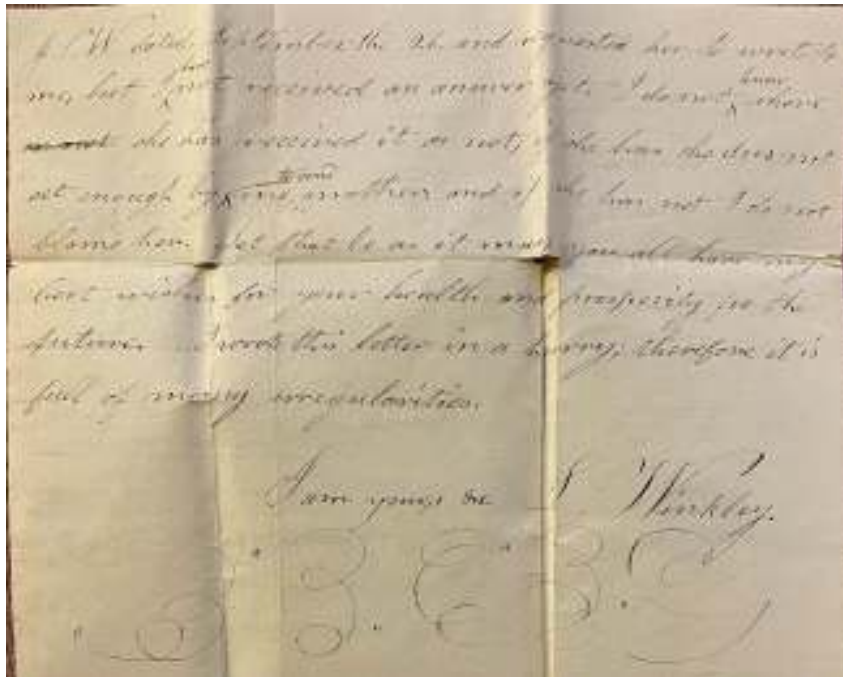 W dated September the 26 and requested her to write to
me, but I have not received an answer yet. I do not know
she has received it or not, if she has she does not
set enough by and if she has not I do not
blame her. Let that be as it may you all have my
best wishes for your health and prosperity in the
future. I wrote this letter in a hurry, therefore it is
full of many irregularities.
I am yours &c Winkley.